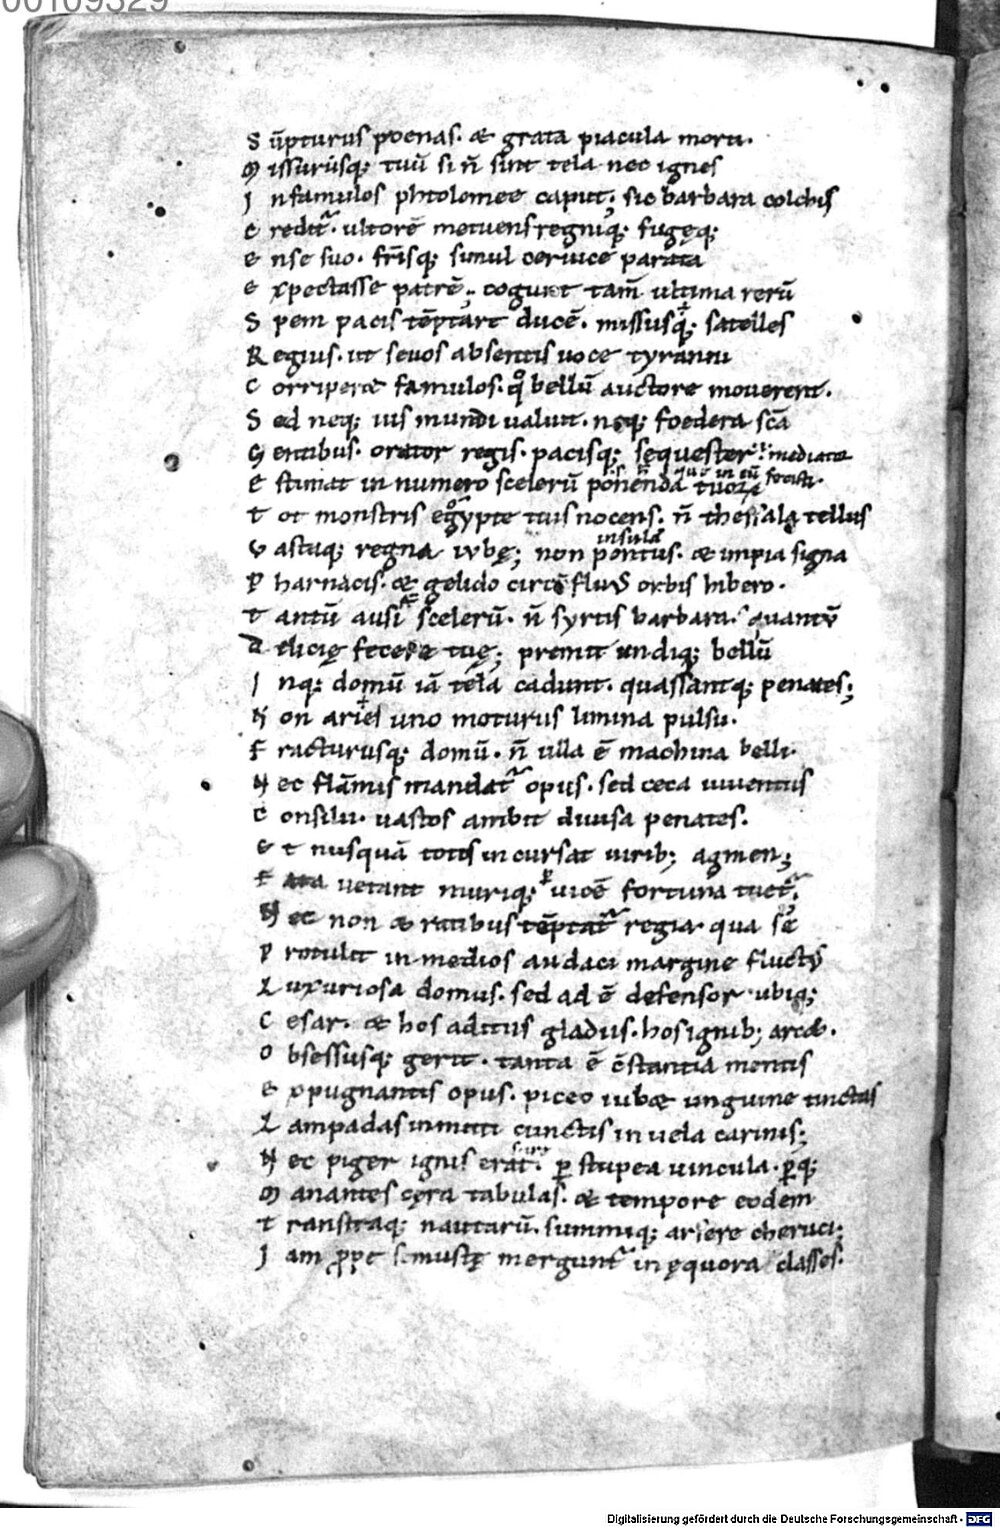 00109329
S ūpturus poenas. & grata piacula morti.
M issurusq; tuū si n̄ sint tela nec ignes
I n famulos phtolomee caput; sic barbara colchis
C redit᷑. ultorē metuens regniq; fugęq;
E nse suo. fr̄isq; simul ceruice parata
E xpectasse patrē; cogunt tam̄ ultima rerū
S pem pacis tēptare ducē. missusq; satelles
R egius. ut seuos absentis uoce tyranni
C orriperet famulos. qͦ bellū auctore mouerent.
S ed neq; ius mundi ualuit. neq; foedera sc̄a
G entibus. orator regis. pacisq; sequester .i. mediator
E stimat in numero scelerū ponenda tuorꝝ
T ot monstris egypte tuis nocens. n̄ thessala tellus
insula
V astaq; regna iubę; non pontus. & impia signa
P harnacis. & gelido circūfluꝰ orbis hibero.
T antū ausi scelerū. n̄ syrtis barbara. quantū
D elicię fecere tuę; premit undiq; bellū
I nq; domū iā tela cadunt. quassantq; penates;
N on ariel uno moturus limina pulsu.
F racturusq; domū. n̄ ulla ē machina belli.
N ec flāmis mandat᷑ opus. sed ceca iuuentus
C onsilii. uastos ambit diuisa penates.
E t nusquā totis incursat uirib; agmen;
F ata uetant muriq; uicē fortuna tuet᷑;
N ec non & ratibus tēptat᷑ regia. qua se
P rotulit in medios audaci margine fluctꝰ
L uxuriosa domus. sed ad ē defensor ubiq;
C esar. & hos aditus gladiis. hos ignib; arcet.
O bsessusq; gerit. tanta ē c̄stantia mentis
E xpugnantis opus. piceo iubet unguine tinctas
L ampadas inmitti cunctis in uela carinis;
N ec piger ignis erat. ꝑ stupea uincula. ꝑq;
M anantes cęra tabulas. & tempore eodem
T ranstraq; nautarū. summiq; arsere cheruci;
I am ꝓpe semustę mergunt᷑ in ęquora classes.
Digitalisierung gefördert durch die Deutsche Forschungsgemeinschaft - DFG